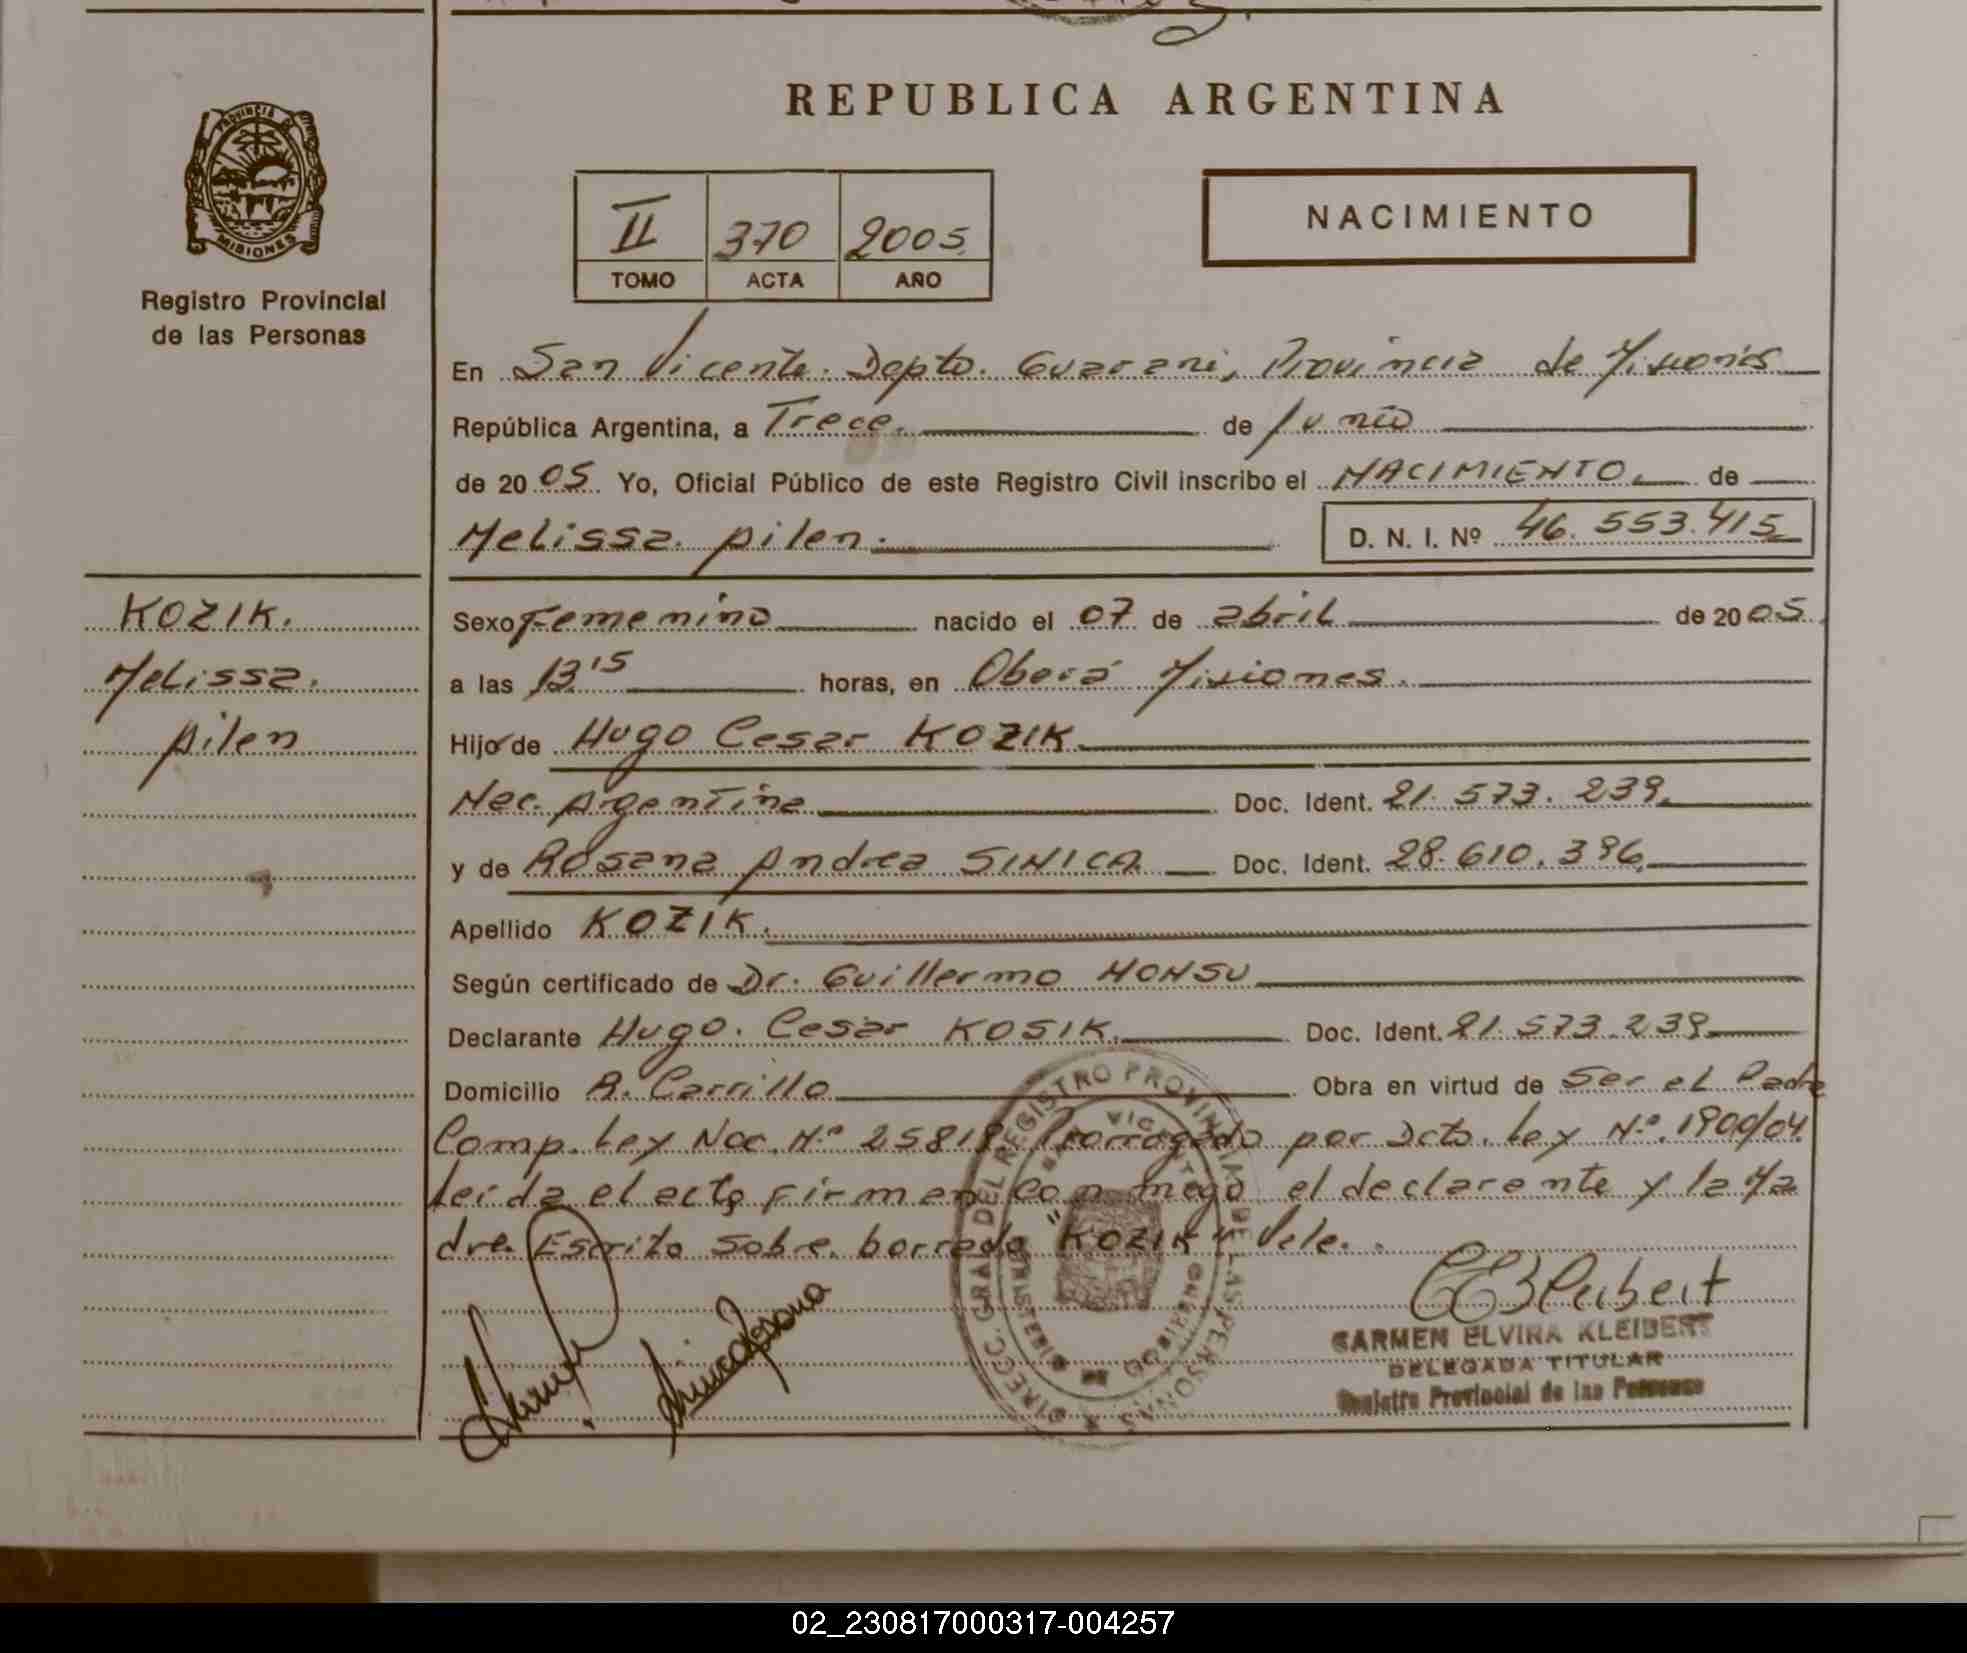 REPUBLICA ARGENTINA
PROVINCIA DE MISIONES
Registro Provincial
de las Personas
II 370 2005
TOMO ACTA AÑO
NACIMIENTO
En San Vicente. Depto. Guarani, Provincia de Misiones
República Argentina, a Trece. de Junio
de 2005. Yo, Oficial Público de este Registro Civil inscribo el NACIMIENTO. de
Melissa pilen. D. N. I. Nº 46.553.415
KOZIK.
Melissa.
pilen
Sexo Femenino nacido el 07 de abril de 2005.
a las 13.15 horas, en Oberá Misiones.
Hijo de Hugo Cesar KOZIK
Nac. Argentina Doc. Ident. 21.573.239.
y de Rosana Andrea SINICA Doc. Ident. 28.610.396
Apellido KOZIK.
Según certificado de Dr. Guillermo MONSU
Declarante Hugo. Cesar KOSIK. Doc. Ident. 21.573.239
Domicilio R. Carrillo Obra en virtud de Ser el Padre
Comp. Ley Nac. Nº 25819 Prorrogado por Dcto. Ley Nº. 1900/04
leida el acta firman conmigo el declarante y la Ma
dre. Escrito sobre borrado "KOZIK" Vale.
Sinica Rosana
CEKleibert
CARMEN ELVIRA KLEIBERT
DELEGADA TITULAR
Registro Provincial de las Personas
DIRECC. GRAL DEL REGISTRO PROVINCIAL DE LAS PERSONAS
02_230817000317-004257